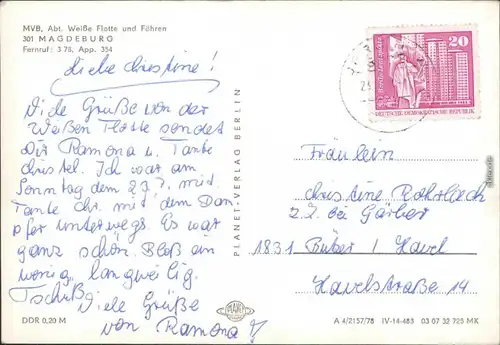 MVB, Abt. Weiße Flotte und Fähren
301 MAGDEBURG
Fernruf: 3 75, App. 354
Liebe Christine!
Viele Grüße von der
Weißen Flotte sendet
Dir Ramona u. Tante
Christel. Ich war am
Sonntag dem 27.7. mit
Tante Chr. mit dem Dam
pfer unterwegs. Es war
ganz schön. Bloß ein
wenig langweilig.
Tschüß
Viele Grüße
von Ramona
DDR 0,20 M
PLANET-VERLAG BERLIN
20
DEUTSCHE DEMOKRATISCHE REPUBLIK
Fräulein
Christine
z.Z. bei Garber
1831 Havel
Havelstraße 14
A 4/2157/78 IV-14-483 03 07 32 725 MK